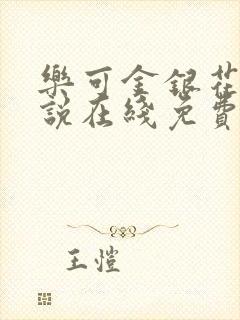 樂可金銀花
說在綫免費
王愷